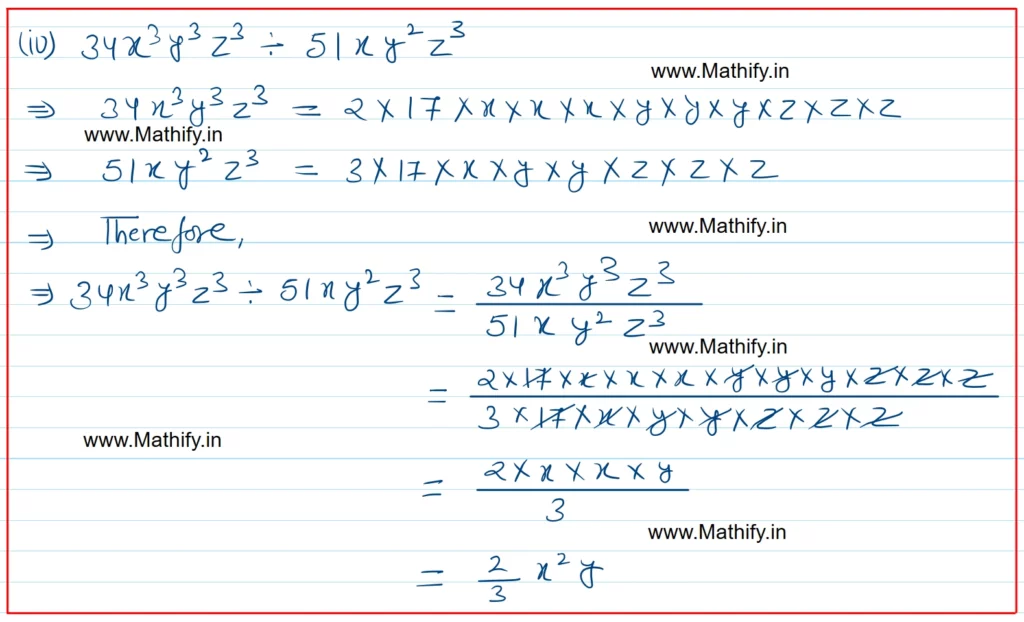 (iv) 34x³y³z³ ÷ 51xy²z³
www.Mathify.in
⇒ 34x³y³z³ = 2×17×x×x×x×y×y×y×z×z×z
www.Mathify.in
⇒ 51xy²z³ = 3×17×x×y×y×z×z×z
www.Mathify.in
⇒ Therefore,
⇒ 34x³y³z³ ÷ 51xy²z³ = 34x³y³z³ / 51xy²z³
www.Mathify.in
= 2×17×x×x×x×y×y×y×z×z×z / 3×17×x×y×y×z×z×z
www.Mathify.in
= 2×x×x×y / 3
www.Mathify.in
= 2/3 x²y